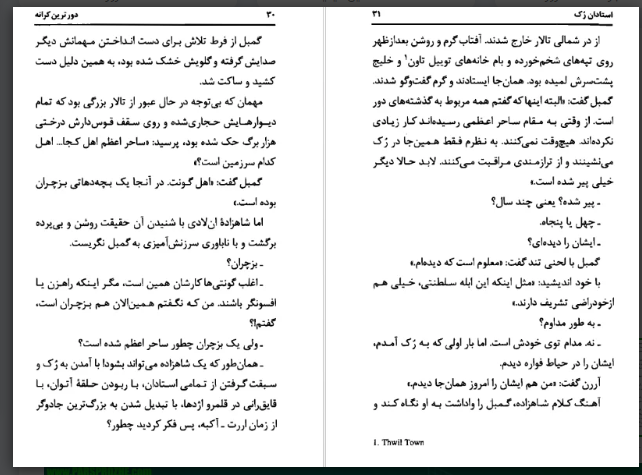 دور ترین کرانه
۳۰
گمبل از فرط تلاش برای دست انداختن مهمانش دیگر
صدایش گرفته و گلویش خشک شده بود، به همین دلیل دست
کشید و ساکت شد.
مهمان که بی‌توجه در حال عبور از تالار بزرگی بود که تمام
دیوارهایش حجاری‌شده و روی سقف قوس‌دارش درختی
هزار برگ حک شده بود، پرسید: «ساحر اعظم اهل کجا... اهل
کدام سرزمین است؟»
گمبل گفت: «اهل گونت. در آنجا یک بچه‌دهاتی بزچران
بوده است.»
اما شاهزادهٔ ان‌لادی با شنیدن آن حقیقت روشن و بی‌پرده
برگشت و با ناباوری سرزنش‌آمیزی به گمبل نگریست.
ـ بزچران؟
ـ اغلب گونتی‌ها کارشان همین است، مگر اینکه راهزن یا
افسونگر باشند. من که نگفتم همین‌الان هم بزچران است،
گفتم؟!
ـ ولی یک بزچران چطور ساحر اعظم شده است؟
ـ همان‌طور که یک شاهزاده می‌تواند بشود! با آمدن به رُک و
سبقت گرفتن از تمامی استادان، با ربودن حلقهٔ آتوان، با
قایق‌رانی در قلمرو اژدها، با تبدیل شدن به بزرگ‌ترین جادوگر
از زمان اررت ـ آکبه، پس فکر کردید چطور؟
استادان رُک
۳۱
از در شمالی تالار خارج شدند. آفتاب گرم و روشن بعدازظهر
روی تپه‌های شخم‌خورده و بام خانه‌های توییل تاون۱ و خلیج
پشت‌سرش لمیده بود. همان‌جا ایستادند و گرم گفت‌وگو شدند.
گمبل گفت: «البته اینها که گفتم همه مربوط به گذشته‌های دور
است. از وقتی به مقام ساحر اعظمی رسیده‌اند کار زیادی
نکرده‌اند. هیچ‌وقت نمی‌کنند. به نظرم فقط همین‌جا در رُک
می‌نشینند و از ترازمندی مراقبت می‌کنند. لابد حالا دیگر
خیلی پیر شده است.»
ـ پیر شده؟ یعنی چند سال؟
ـ چهل یا پنجاه.
ـ ایشان را دیده‌ای؟
گمبل با لحنی تند گفت: «معلوم است که دیده‌ام.»
با خود اندیشید: «مثل اینکه این ابله سلطنتی، خیلی هم
ازخودراضی تشریف دارند.»
ـ به طور مداوم؟
ـ نه. مدام توی خودش است. اما بار اولی که به رُک آمدم،
ایشان را در حیاط فواره دیدم.
آررن گفت: «من هم ایشان را امروز همان‌جا دیدم.»
آهنگ کلام شاهزاده، گمبل را واداشت به او نگاه کند و
1. Thwil Town